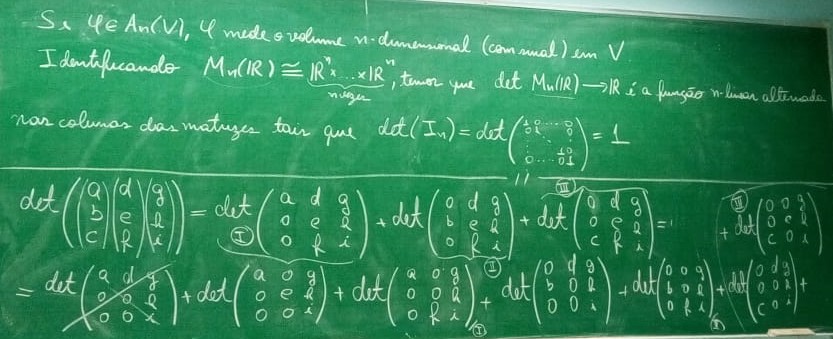 Se φ ∈ An(V), φ mede o volume n-dimensional (com sinal) em V
Identificando Mn(IR) ≅ IRⁿ x...x IRⁿ, temos que det Mn(IR) → IR é a função n-linear alternada
n vezes
nas colunas das matrizes tais que det(In) = det (1 0 ... 0 / 0 1 ... 0 / 0 ... 1 0 / 0 ... 0 1) = 1
det ((a / b / c)(d / e / h)(g / h / i)) = det (a d g / 0 e h / 0 h i) + det (0 d g / b e h / 0 h i) + det (0 d g / 0 e h / c h i) = + det (0 0 g / 0 e h / c 0 i)
I II III III
= det (a d g / 0 0 h / 0 0 i) + det (a 0 g / 0 e h / 0 0 i) + det (a 0 g / 0 0 h / 0 h i) + det (0 d g / b 0 h / 0 0 i) + det (0 0 g / b 0 h / 0 h i) + det (0 d g / 0 0 h / c 0 i) +
I II